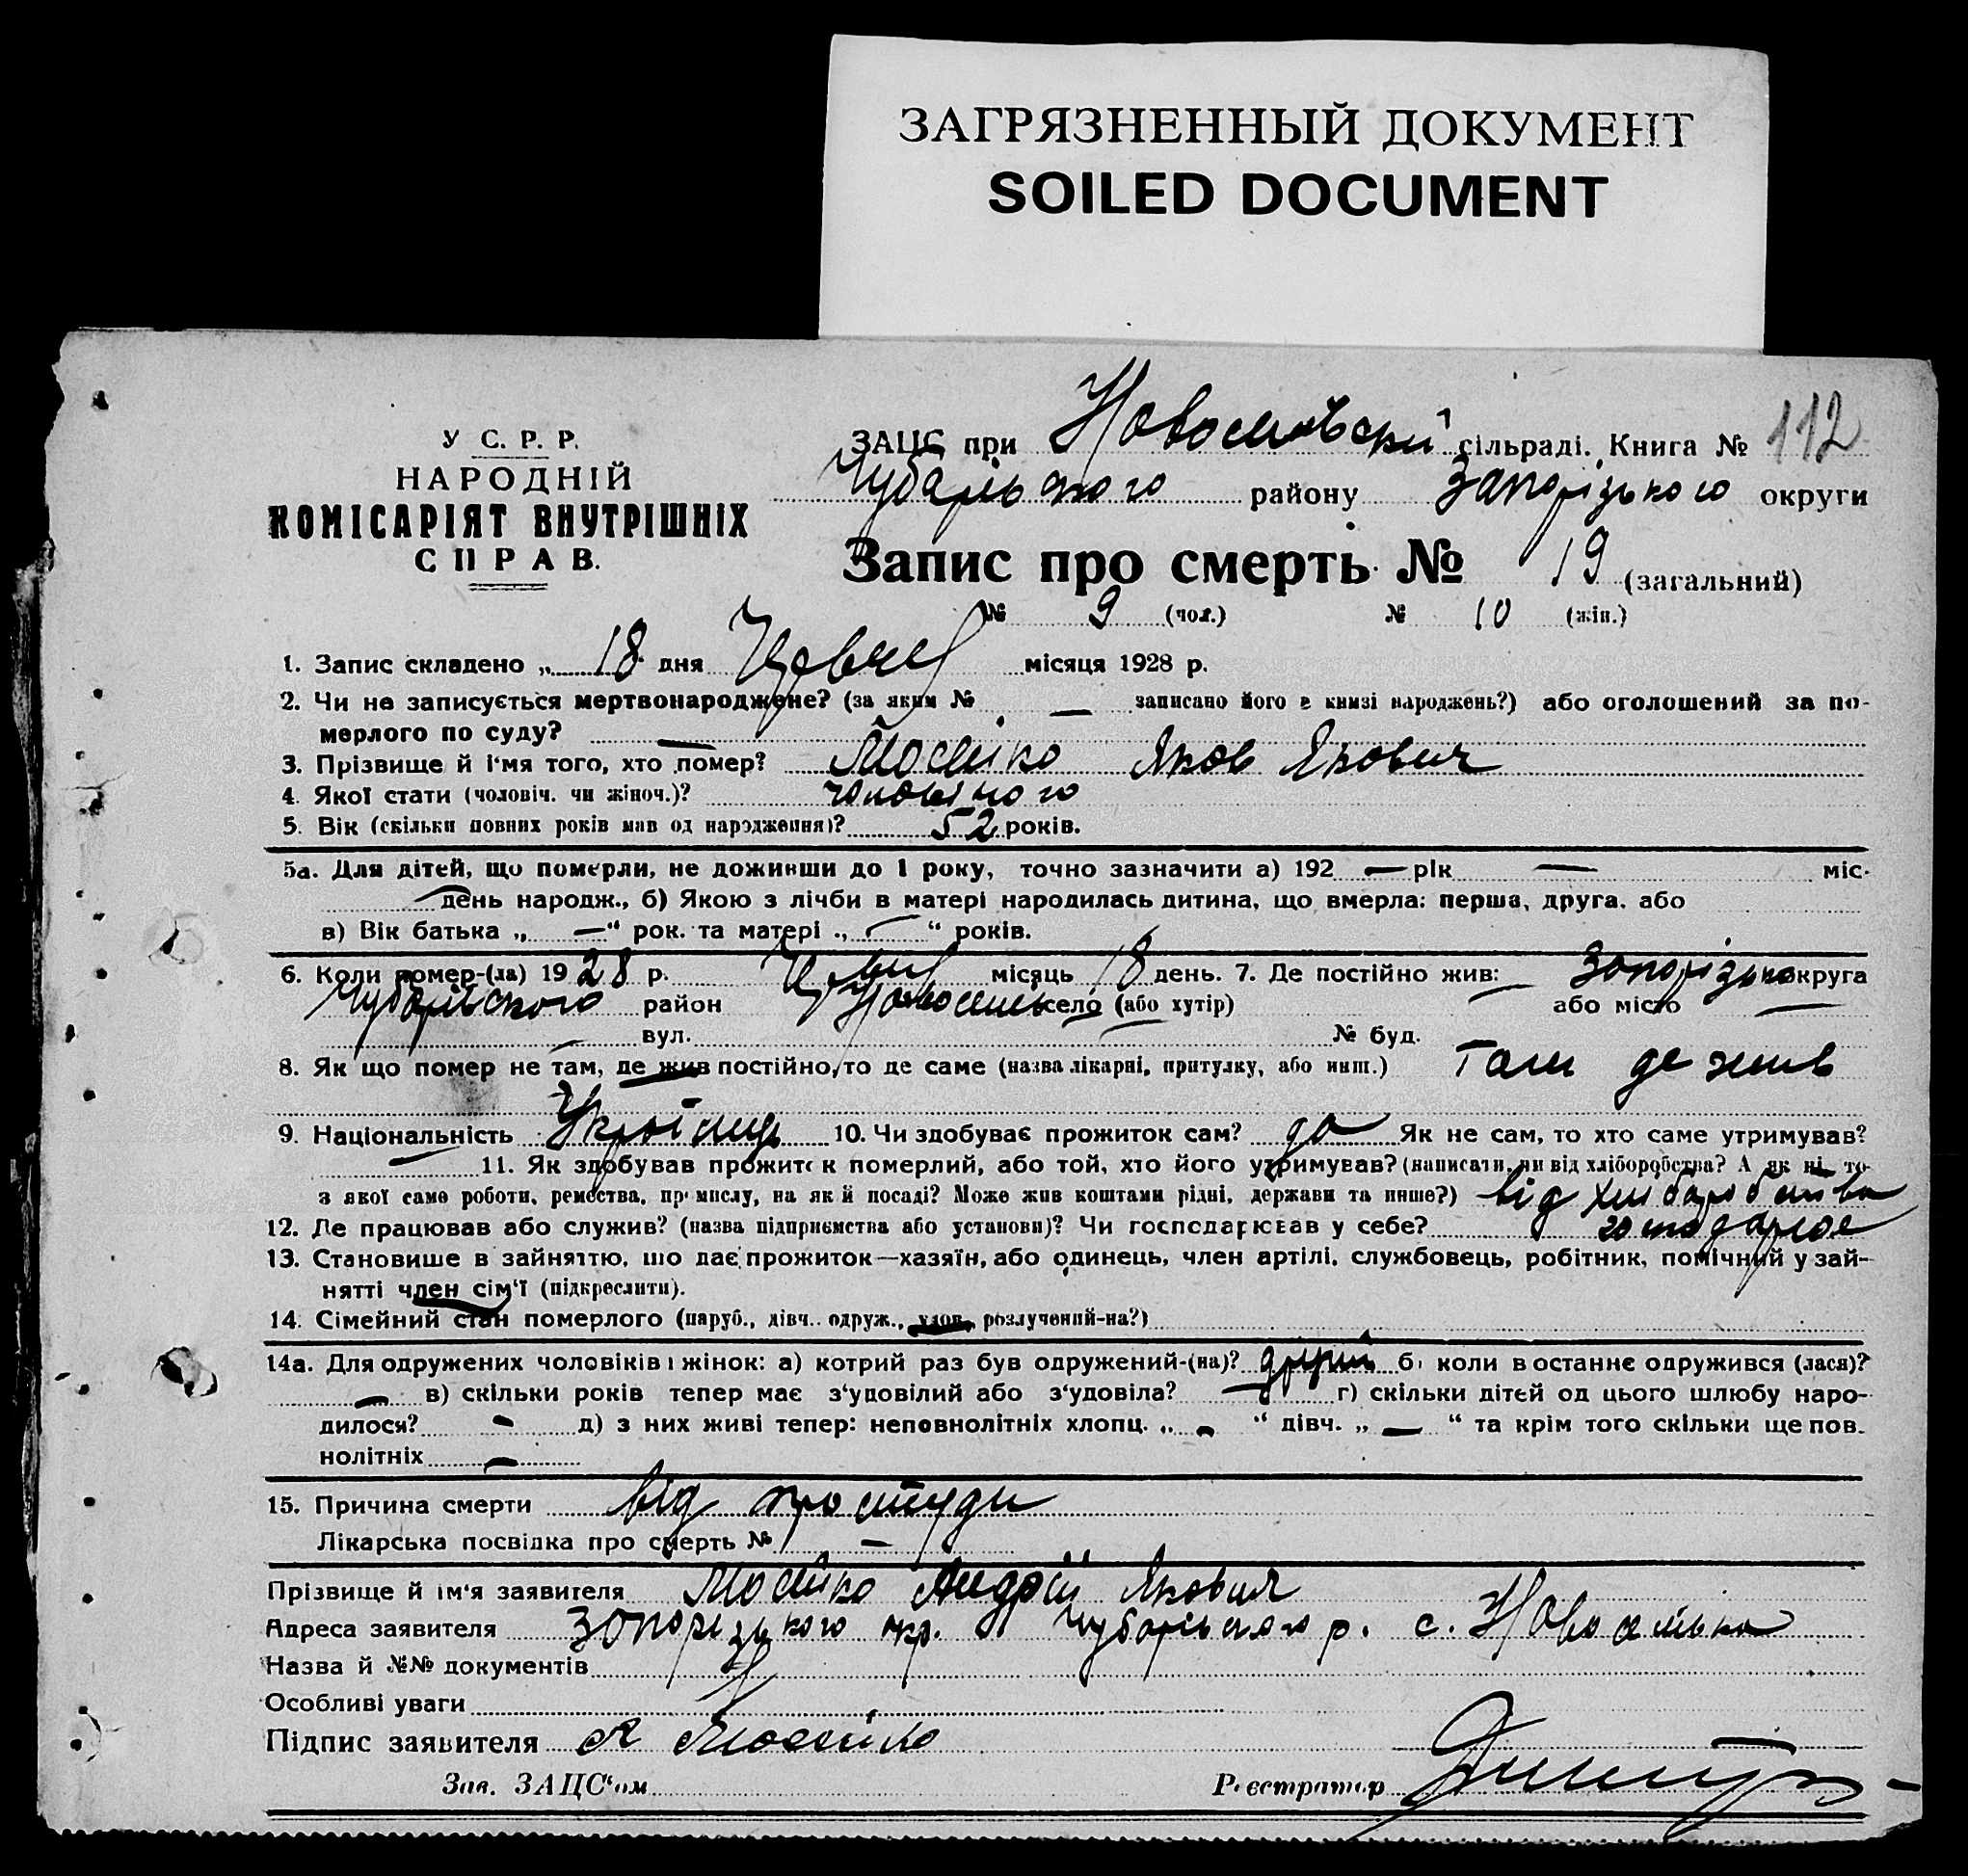 ЗАГРЯЗНЕННЫЙ ДОКУМЕНТ
SOILED DOCUMENT
У С. Р. Р.
НАРОДНІЙ
КОМІСАРІЯТ ВНУТРІШНІХ
СПРАВ.
ЗАЦС при сільраді. Книга № 112
району Запорізького округи
Запис про смерть № 19 (загальний)
№ 9 (чол.) № 10 (жін.)
1. Запис складено „ 18 дня місяця 1928 р.
2. Чи не записується мертвонароджене? (за яким № — записано його в книзі народжень?) або оголошений за по-
мерлого по суду? —
3. Прізвище й і'мя того, хто помер? Яков Якович
4. Якої стати (чоловіч. чи жіноч.)?
5. Вік (скільки повних років мав од народження)? 52 років.
5а. Для дітей, що померли, не доживши до 1 року, точно зазначити а) 192 — рік — міс.
— день народж., б) Якою з лічби в матері народилась дитина, що вмерла: перша, друга, або
в) Вік батька „ — “ рок. та матері „ — “ років.
6. Коли помер-(ла) 1928 р. місяць 18 день. 7. Де постійно жив: округа
район село (або хутір) або місто —
вул. № буд.
8. Як що помер не там, де жив постійно, то де саме (назва лікарні, притулку, або инш.) Там де жив
9. Національність Украінець 10. Чи здобуває прожиток сам? да Як не сам, то хто саме утримував?
— 11. Як здобував прожиток померлий, або той, хто його утримував? (написати, чи від хліборобства? А як ні, то
з якої саме роботи, ремества, промислу, на якій посаді? Може жив коштами рідні, держави та инше?) від хліборобства
12. Де працював або служив? (назва підприємства або установи)? Чи господарював у себе?
13. Становище в зайняттю, що дає прожиток—хазяїн, або одинець, член артілі, службовець, робітник, помічний у зай-
нятті член сім'ї (підкреслити).
14. Сімейний стан померлого (паруб., дівч.. одруж., удов., розлучений-на?)
14а. Для одружених чоловіків і жінок: а) котрий раз був одружений-(на)? другий б) коли в останнє одружився (лася)?
— в) скільки років тепер має з'удовілий або з'удовіла? — г) скільки дітей од цього шлюбу наро-
дилося? — д) з них живі тепер: неповнолітніх хлопц. „ — “ дівч. „ — “ та крім того скільки ще пов.
нолітніх —
15. Причина смерти від простуди
Лікарська посвідка про смерть № —
Прізвище й ім'я заявителя Андрій Якович
Адреса заявителя Запорізького окр. р. с. Новоселька
Назва й №№ документів
Особливі уваги
Підпис заявителя
Зав. ЗАЦС'ом
Реєстратор